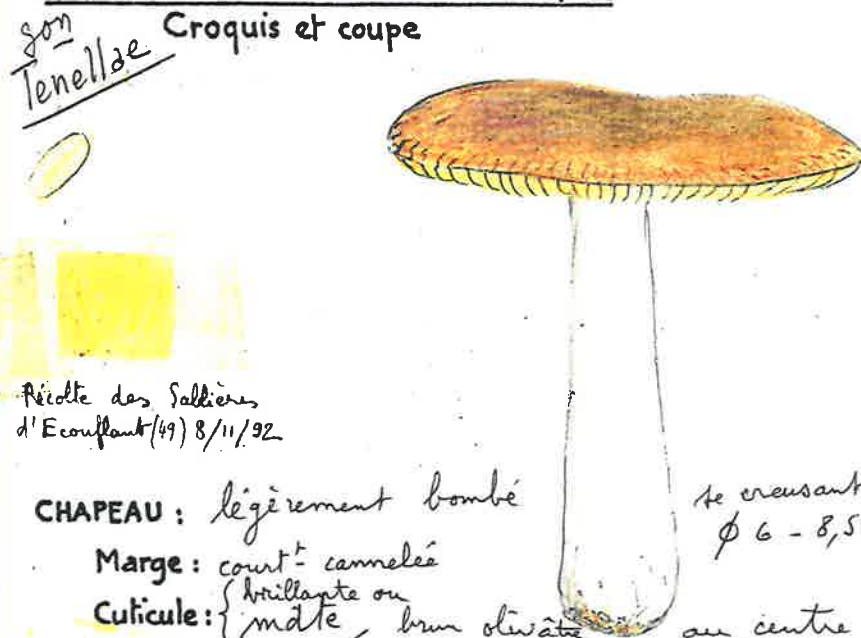 son
Tenellae
Croquis et coupe
Récolte des Sablières
d'Ecouflant (49) 8/11/92
CHAPEAU : légèrement bombé se creusant
φ 6 - 8,5
Marge : court^t cannelée
Cuticule : { brillante ou
mate, brun olivâtre au centre